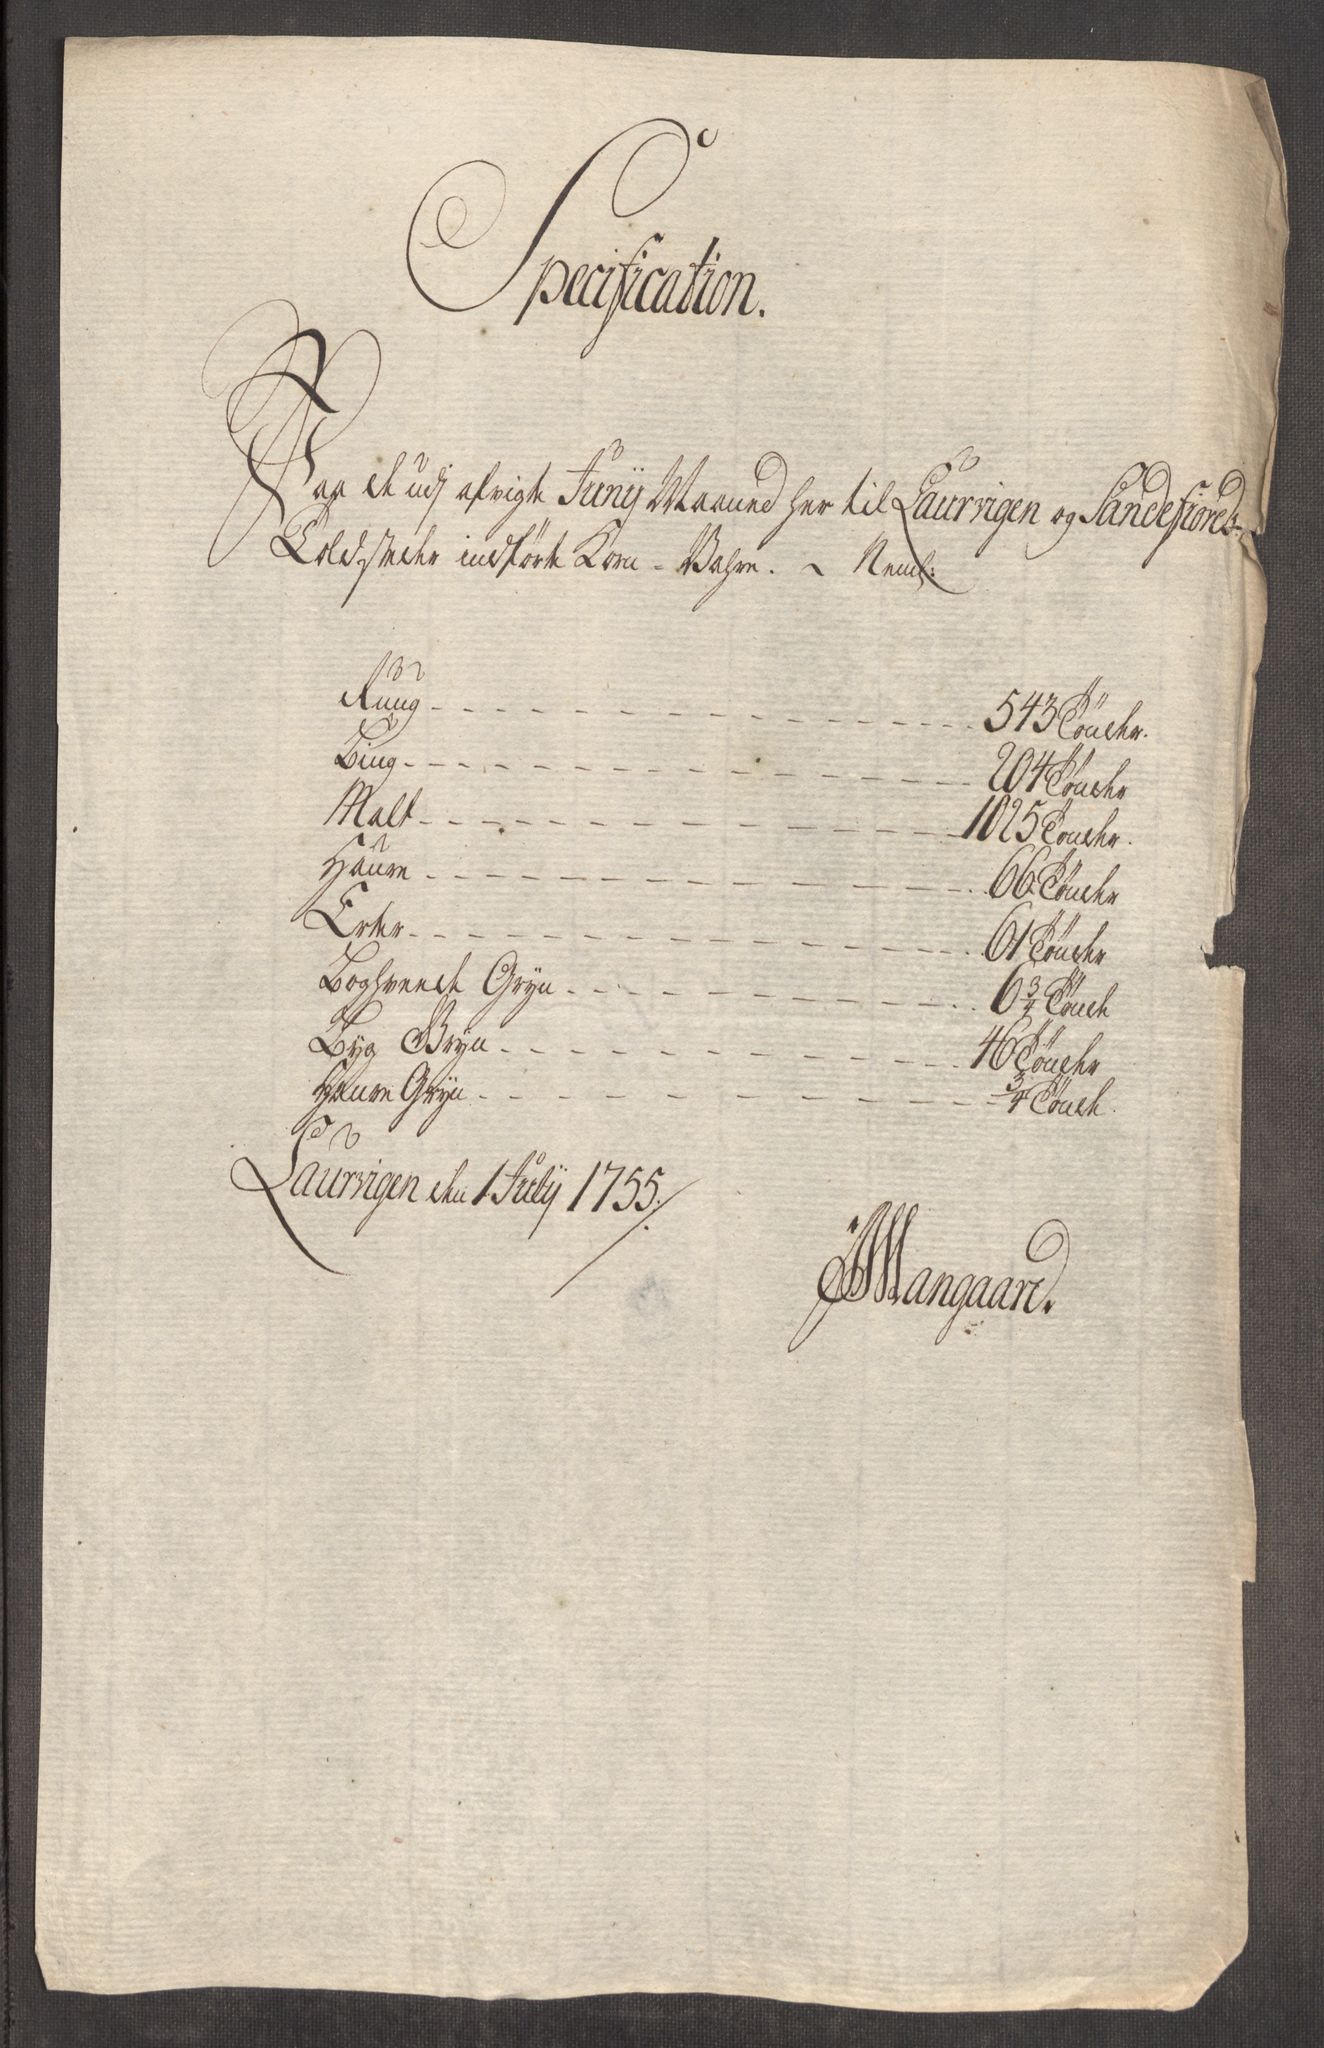 Specification.
Paa de udj afvigte Junij Maaned her til Laurvigen og Sandefiords
Told-steder indførte Korn-Vahre. Neml:
Rüüg 543 Tönder.
Bŭg 204 Tönder
Malt 1025 Tönder.
Haure 66 Tönder
Erter 61 Tönder
Boghveede Gryn 6 3/4 Tönde
Byg Gryn 46 Tönder
Haure Gryn 3/4 Tönde.
Laurvigen den 1 July 1755.
Mangaard.